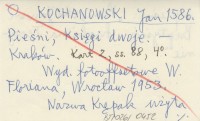 KOCHANOWSKI Jan 1586.
Pieśni, Księgi dwoje. —
Kraków. Kart 2, ss. 88, 4°.
Wyd. fotooffsetowe W.
Floriana, Wrocław 1953.
Nazwa Krępak użyta